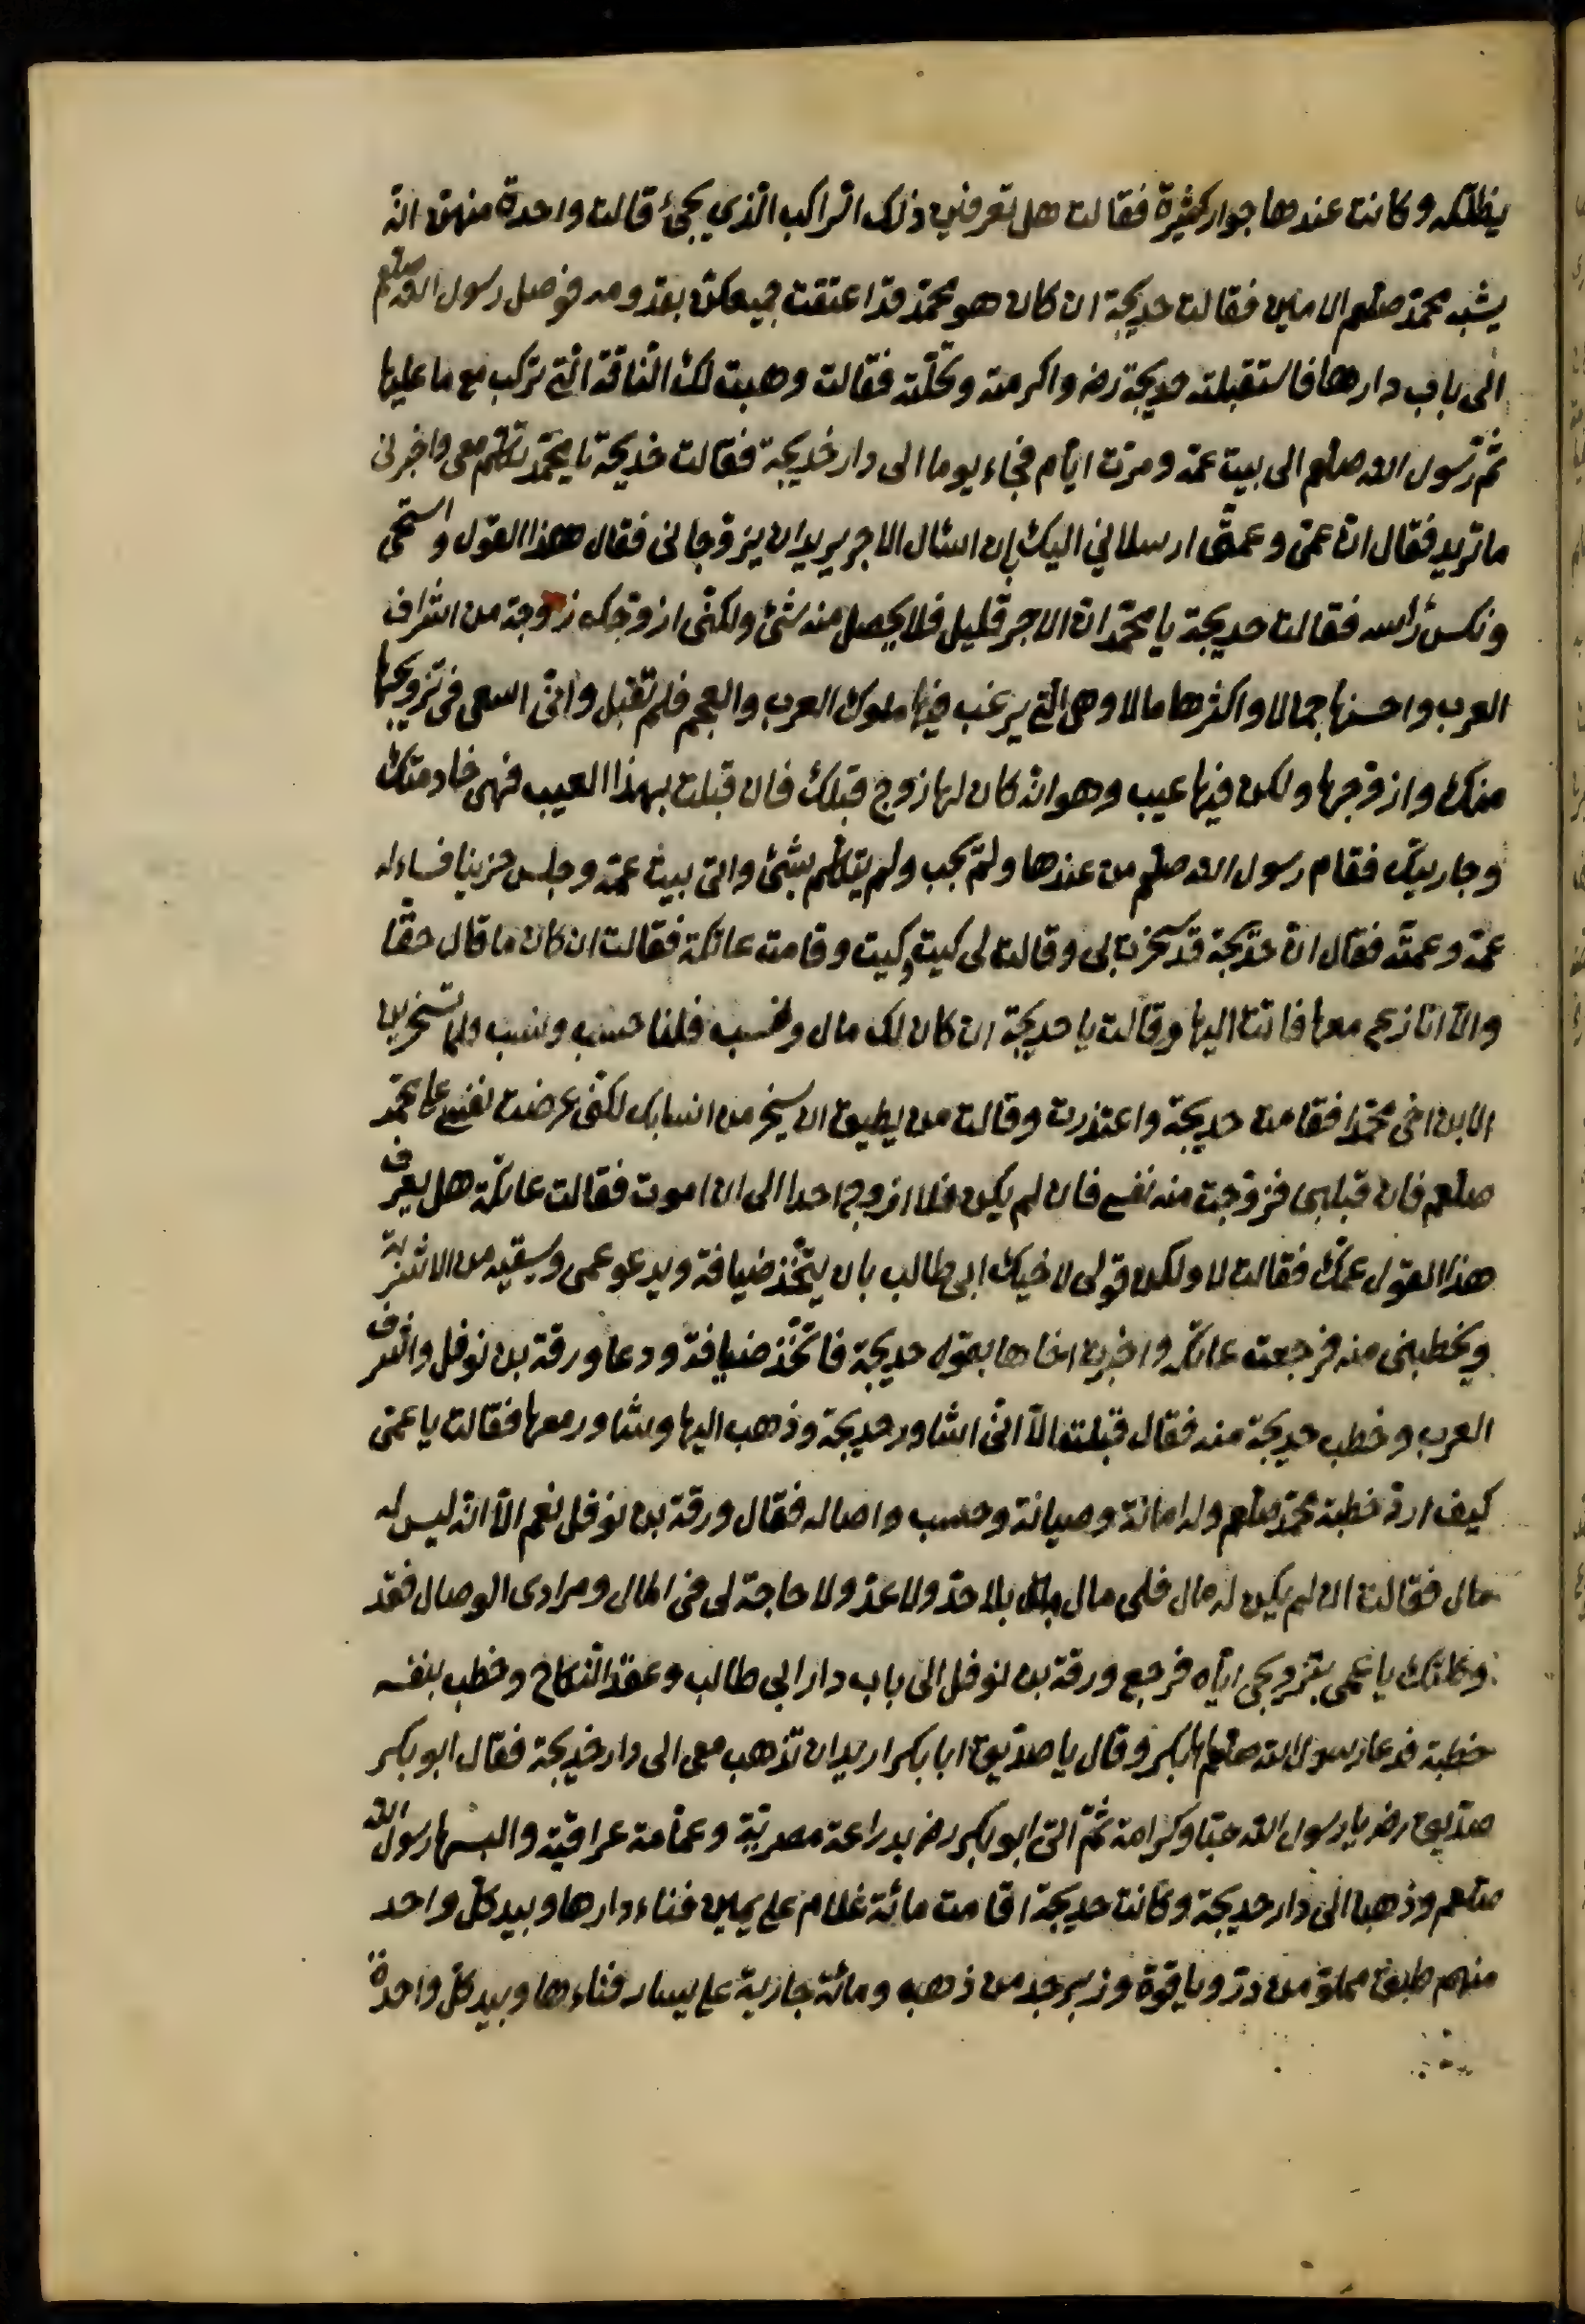 يظلّه وكانت عندها جوار كثيرة فقالت هل تعرفين ذلك الراكب الذي يجئ قالت واحدة منهن انّه
يشبه محمّد صلعم الامين فقالت خديجة ان كان هو محمّد قد اعتقت جميعكنّ بقدومه فوصل رسول الله صلعم
الى باب دارها فاستقبلته خديجة رضـ واكرمته وبجّلته فقالت وهبت لك الناقة الّتي تركب مع ما عليها
ثمّ رسول الله صلعم الى بيت عمّه ومرّت ايّام فجاء يوما الى دار خديجة فقالت خديجة يا محمّد تكلّم معي واخبرني
ما تريد فقال انّ عمّي وعمّتي ارسلاني اليك بان اسئال الاجر يريدان يزوّجاني فقال هذا القول واستحيى
ونكس رأسه فقالت خديجة يا محمّد انّ الاجر قليل فلا يحصل منه شئ ولكنّي ازوّجك زوجة من اشراف
العرب واحسنها جمالا واكثرها مالا وهي الّتي يرغب فيها ملوك العرب والعجم فلم تقبل وانّي اسعى في تزويجها
منك وازوّجها ولكن فيها عيب وهو انّه كان لها زوج قبلك فان قبلت بهذا العيب فهي خادمتك
وجاريتك فقام رسول الله صلعم من عندها ولم يجب ولم يتكلّم بشئ واتى بيت عمّه وجلس حزينا فساءله
عمّه وعمّته فقال انّ خديجة قد سخرت بي وقالت لي كيت وكيت وقامت عاتكة فقالت ان كان ما قال حقّا
والّا انازع معها فاتت اليها وقالت يا خديجة ان كان لك مال وحسب فلنا حسب ونسب ولما تسخرين
الابن اخي محمّدا فقامت خديجة واعتذرت وقالت من يطيق ان يسخر من انسابك لكنّي عرضت نفسي على محمّد
صلعم فان قبلني فزوّجت منه نفسي فان لم يكن فلا ازوج احدا الى ان اموت فقالت عاتكة هل يعرف
هذا القول عمّك فقالت لا ولكن قولي لاخيك ابي طالب بان يتّخذ ضيافة ويدعو عمي ويسقيه من الاشربة
ويخطبني منه فرجعت عاتكة واخبرت اخاها بقول خديجة فاتّخذ ضيافة ودعا ورقة بن نوفل واشرف
العرب وخطب خديجة منه فقال قبلت الّا انّي اشاور خديجة وذهب اليها وشاور معها فقالت يا عمّي
كيف اردّ خطبة محمّد صلعم وله امانة وصيانة وحسب واصاله فقال ورقة بن نوفل نعم الّا انّه ليس له
مال فقالت ان لم يكن له مال فلي مال بلا حدّ ولا عدّ ولا حاجة لي في المال ومرادي الوصال فقد
وكلتك يا عمي بتزويجي ايّاه فرجع ورقة بن نوفل الى باب دار ابي طالب وعقد النكاح وخطب بنفسه
خطبة فدعا رسول الله صلعم ابا بكر وقال يا صدّيق ابا بكر اريد ان تذهب معي الى دار خديجة فقال ابو بكر
صدّيق رضـ يا رسول الله حبّا وكرامة ثمّ اتى ابو بكر رضـ بدراعة مصريّة وعمامة عراقيّة والبسها رسول الله
صلعم وذهبا الى دار خديجة وكانت خديجة اقامت مائة غلام على يمين فناء دارها وبيد كلّ واحد
منهم طبق مملوّ من درّ وياقوة وزبرجد من ذهب ومائة جارية على يسار فناءها وبيد كلّ واحدة